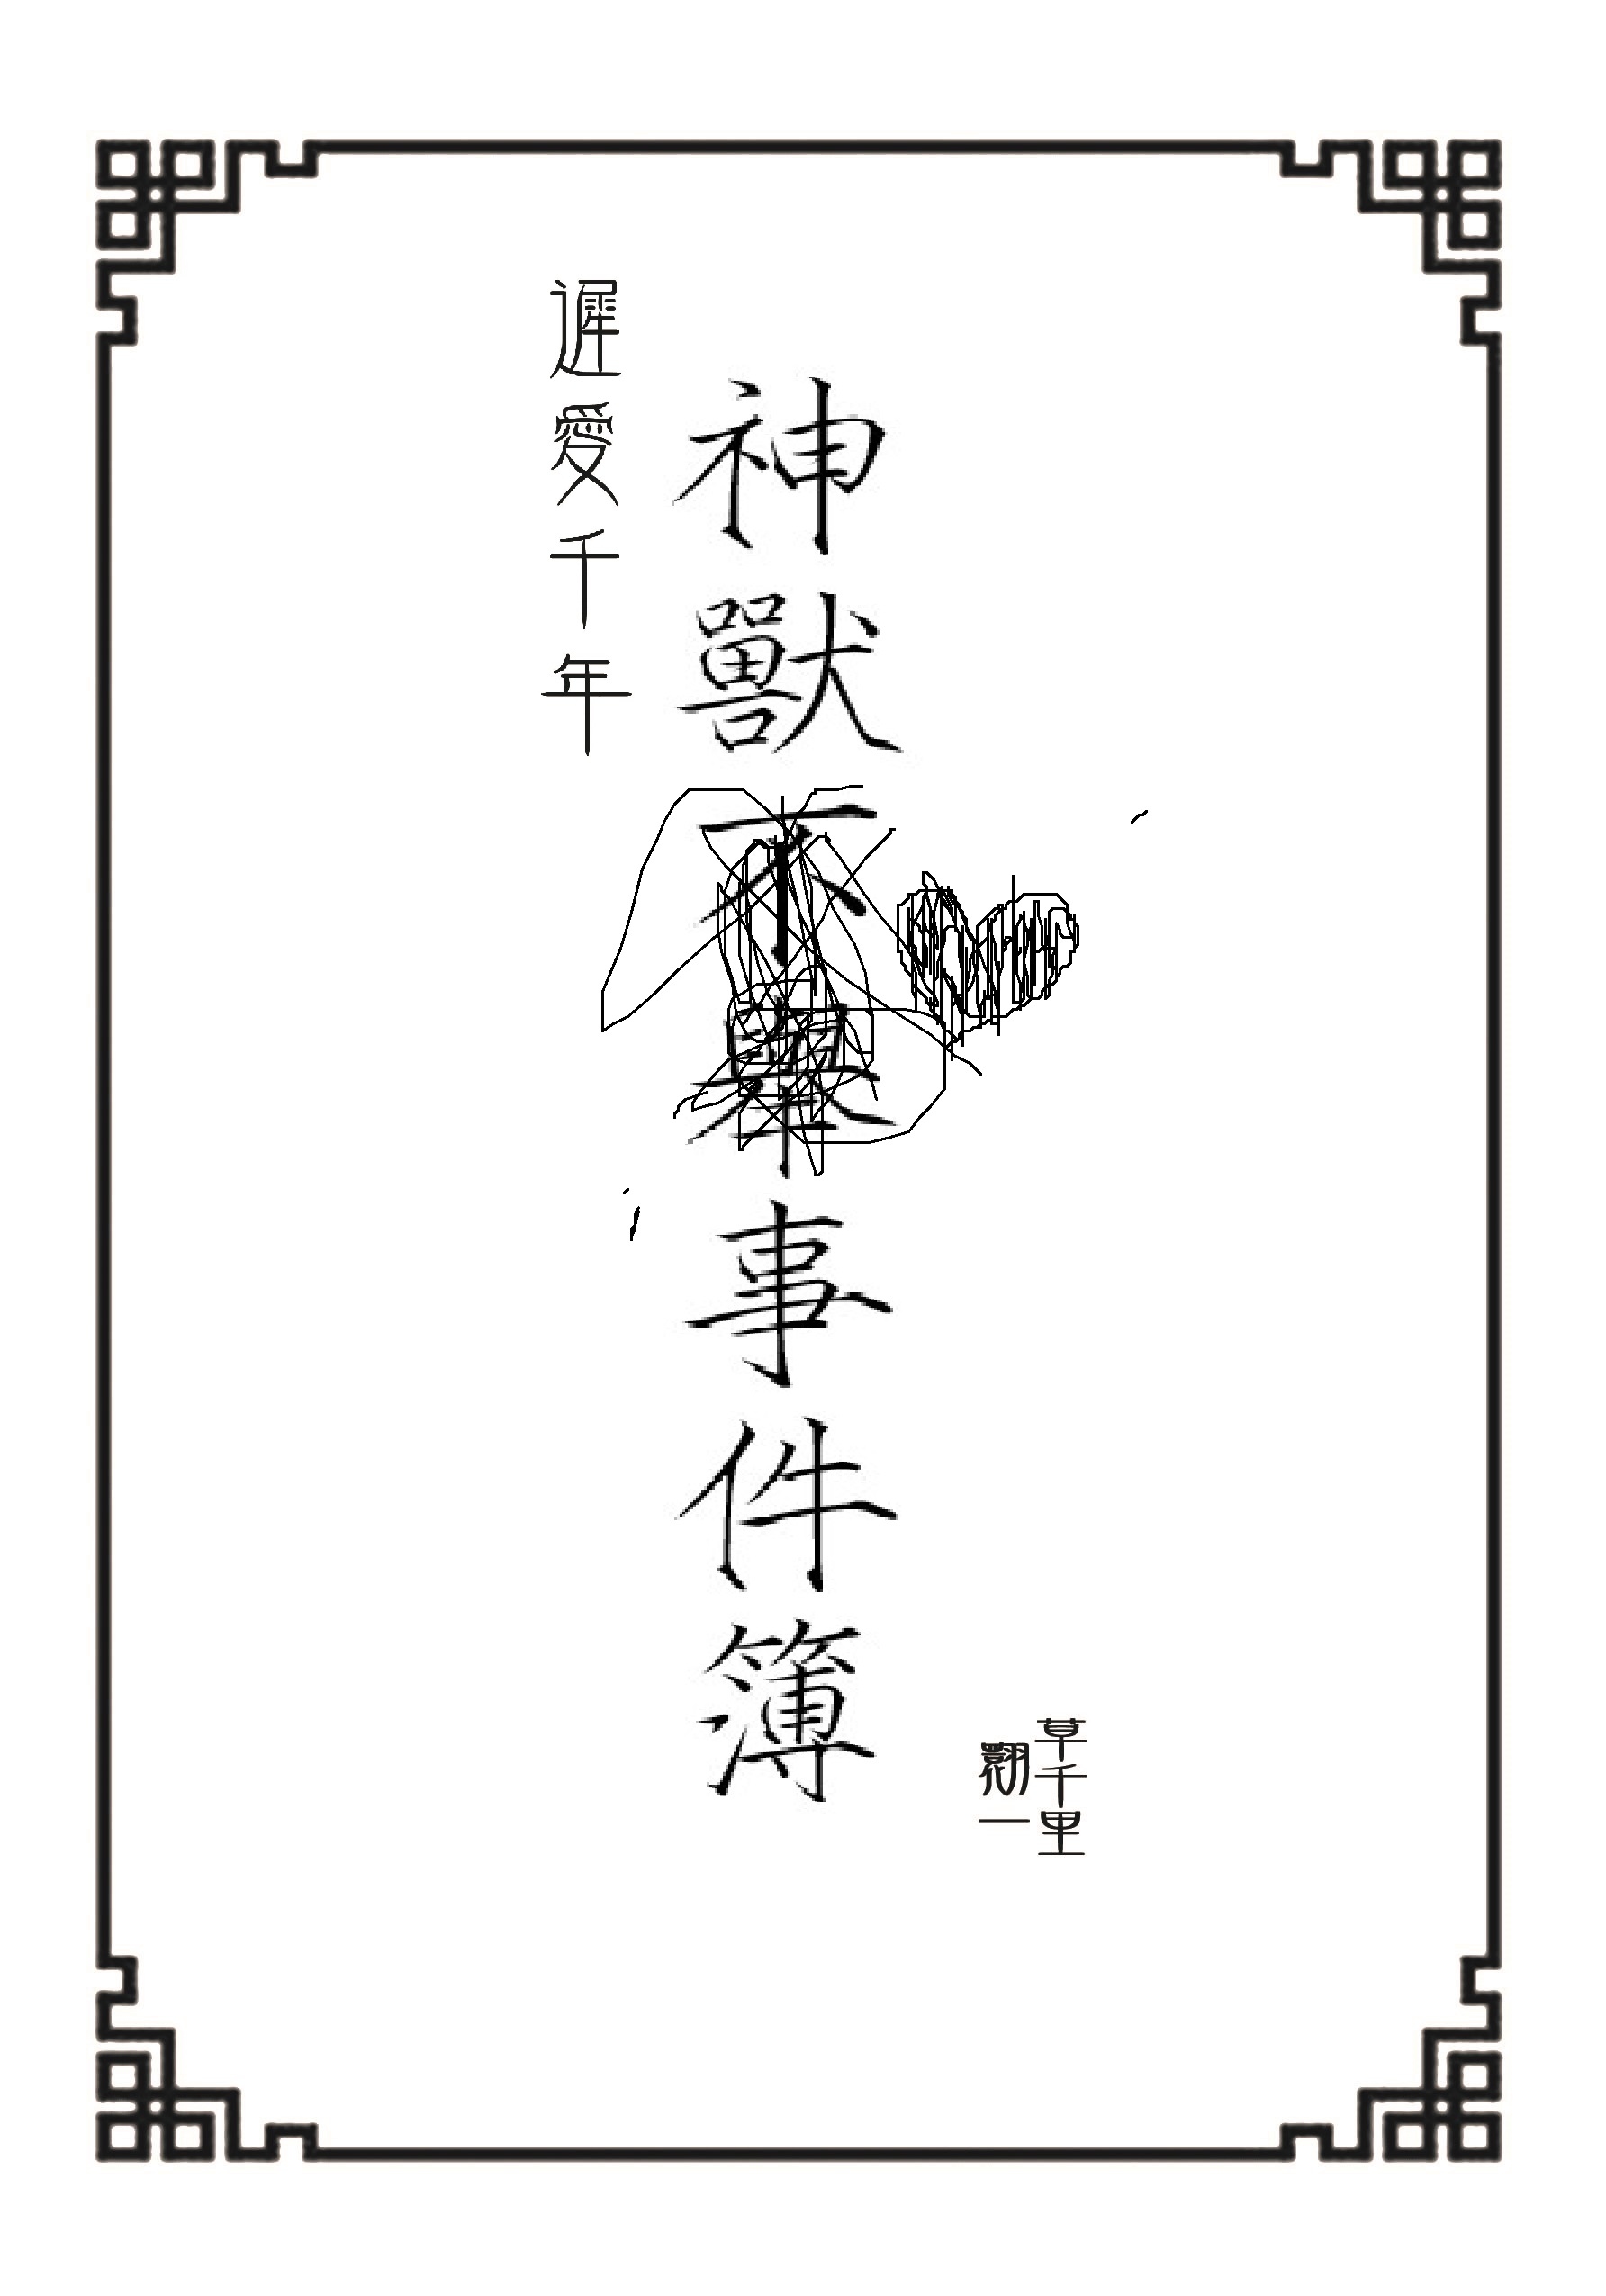 神獸不舉事件簿
遲愛千年
草千里
翗一